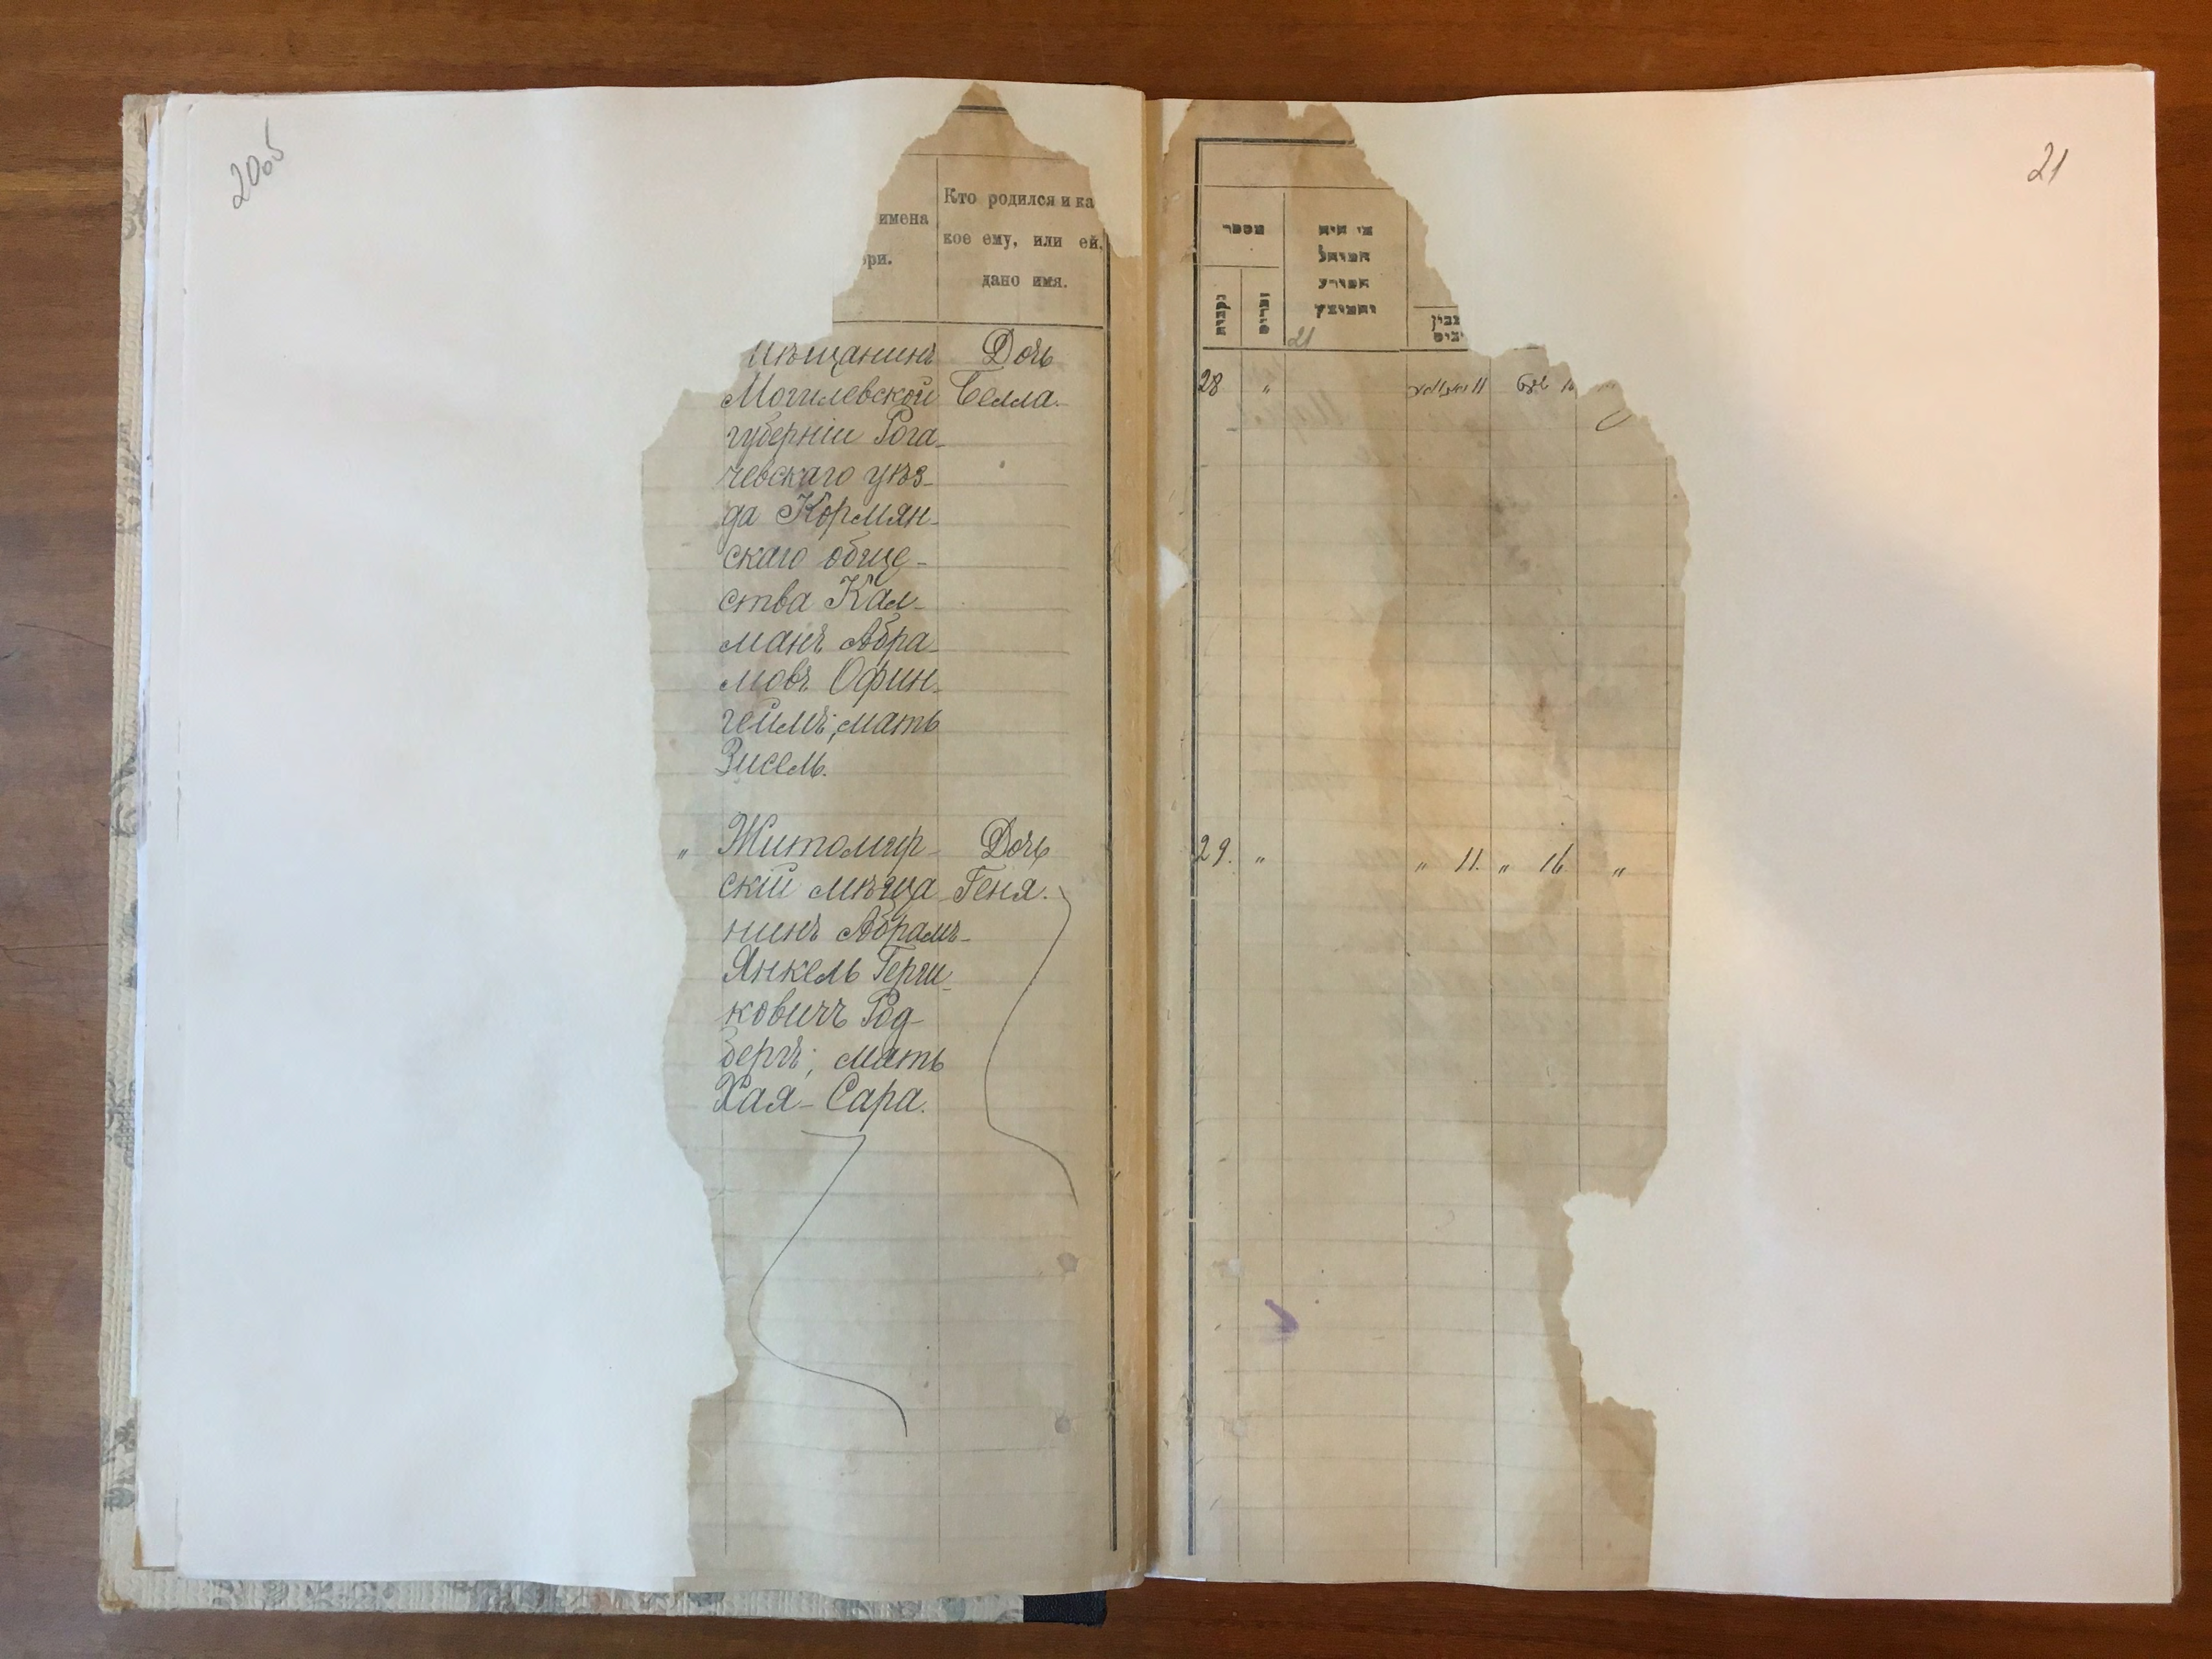 20об
имена
ри.
Кто родился и ка
кое ему, или ей,
дано имя.
мѣщанинъ
Могилевской
губерніи Рога-
чевскаго уѣз-
да Кормян-
скаго обще-
ства Кал-
манъ Абра-
мовъ Офин-
геймъ; мать
Зисель.
Дочь
Белла.
" Житомир-
скій мѣща
нинъ Абрамъ-
Янкель Герш
ковичъ Род-
бергъ; мать
Хая-Сара.
Дочь
Геня.
21
מספר
נקבות
זכרים
מי היה
המוהל
הפורע
והמוצץ
21
28 "
11
29. " " 11. " 16 "